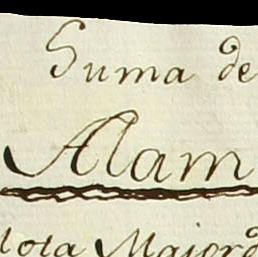 Suma de
Alam
Nota Majord